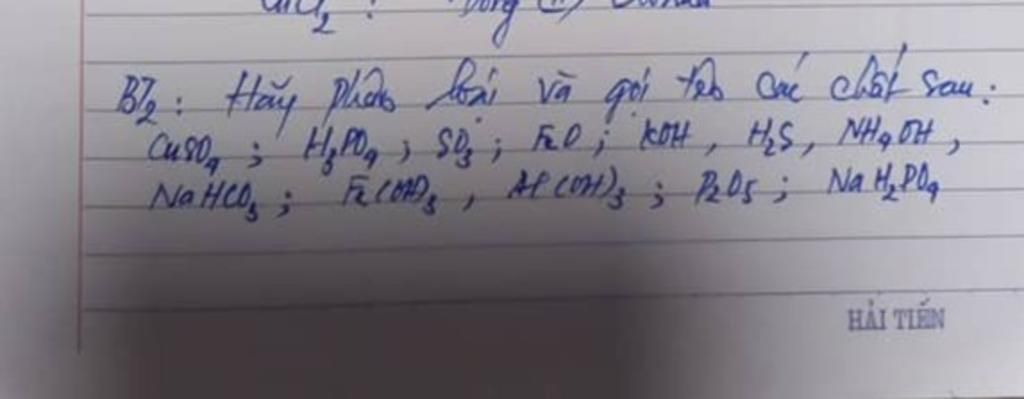 CuCl2 : Đồng (II)
BT2 : Hãy phân loại và gọi tên các chất sau :
CuSO4 ; H3PO4 ; SO3 ; FeO ; KOH , H2S , NH4OH ,
NaHCO3 ; Fe(OH)3 , Al(OH)3 ; P2O5 ; NaH2PO4
HẢI TIẾN